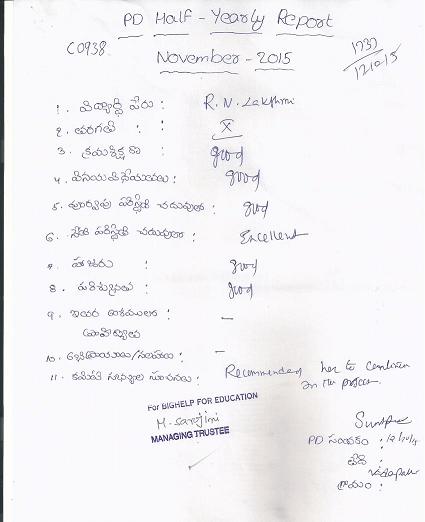 PD Half - Yearly Report
C0938
November - 2015
1. విద్యార్థి పేరు : R. N. Lakshmi
2. తరగతి : X
3. క్రమశిక్షణ : good
4. వినయ విధేయతలు : good
5. పూర్వపు పరిస్థితి చదువులో : good
6. నేటి పరిస్థితి చదువులో : Excellent
7. హాజరు : good
8. పరిశుభ్రత : good
9. ఇతర అంశములు : -
10. :
11. కమిటీ సభ్యుల సూచనలు : Recommended her to continue
in the process.
For BIGHELP FOR EDUCATION
M. Sarojini
MANAGING TRUSTEE
PD సంతకం :
తేది :
గ్రామం :